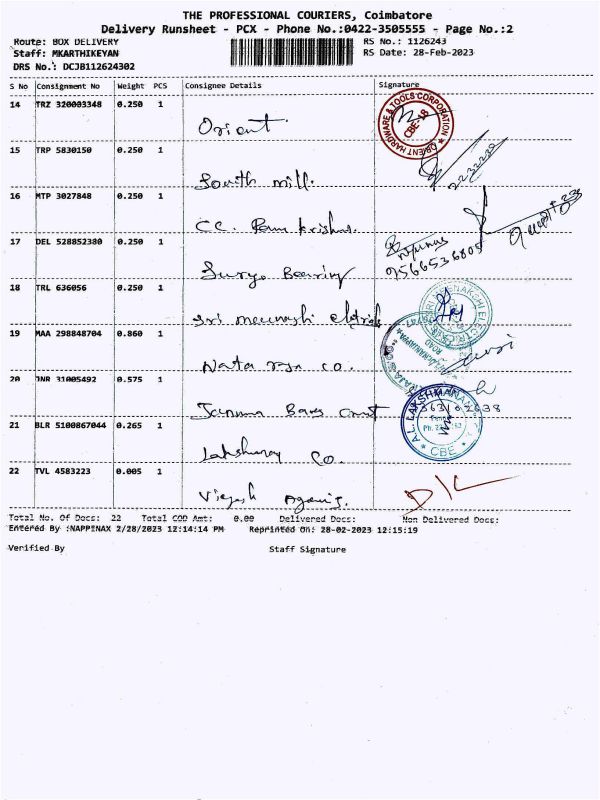 THE PROFESSIONAL COURIERS, Coimbatore
Delivery Runsheet - PCX - Phone No.:0422-3505555 - Page No.:2
Route: BOX DELIVERY RS No.: 1126243
Staff: MKARTHIKEYAN RS Date: 28-Feb-2023
DRS No.: DCJB112624302
S No Consignment No Weight PCS Consignee Details Signature
14 TRZ 320003348 0.250 1 Orient
ORIENT HARDWARE & TOOLS CORPORATION CBE-18
15 TRP 5830150 0.250 1 South mill.
16 MTP 3027848 0.250 1 CC. Ram krishna.
17 DEL 528852380 0.250 1 Surya Bearing
9566536805
18 TRL 636056 0.250 1 Sri meenashi
19 MAA 298848704 0.860 1 Nata co.
20 JNR 31005492 0.575 1
21 BLR 5100867044 0.265 1 Co.
A.L. LAKSHMANAN CBE
22 TVL 4583223 0.005 1
Total No. Of Docs: 22 Total COD Amt: 0.00 Delivered Docs: Non Delivered Docs:
Entered By :NAPPINAX 2/28/2023 12:14:14 PM Reprinted On: 28-02-2023 12:15:19
Verified By Staff Signature